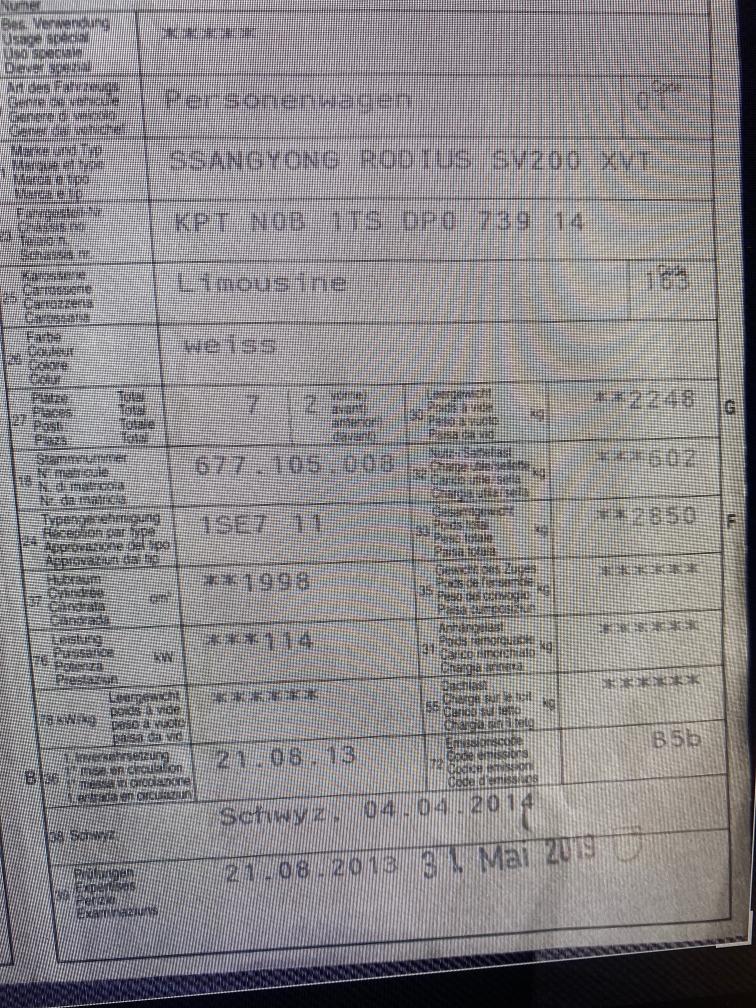 Numer
Bes. Verwendung
Usage spécial
Uso speciale
Diever spezial
*****
Art des Fahrzeugs
Genre de véhicule
Genere di veicolo
Gener dal vehichel
Personenwagen
Code
01
Marke und Typ
Marque et type
Marca e tipo
Marca e tip
SSANGYONG RODIUS SV200 XVT
23
Fahrgestell-Nr.
Châssis no
Telaio n.
Schassis nr.
KPT N0B 1TS DP0 739 14
25
Karosserie
Carrosserie
Carrozzeria
Carossaria
Limousine
Code
163
26
Farbe
Couleur
Colore
Colur
weiss
27
Plätze Total
Places Total
Posti Totale
Plazs Total
7
2
vorne)
avant)
anteriori)
davant)
30
Leergewicht
Poids à vide
Peso a vuoto
Paisa da vid
kg
**2248
G
18
Stammnummer
N° matricule
N. di matricola
Nr. da matricla
677.105.008
32
Nutz-/Sattellast
Charge utile/sellette
Carico utile/sella
Chargia utila/sella
kg
***602
24
Typengenehmigung
Réception par type
Approvazione del tipo
Approvaziun dal tip
1SE7 11
33
Gesamtgewicht
Poids total
Peso totale
Paisa totala
kg
**2850
F
37
Hubraum
Cylindrée
Cilindrata
Cilindrada
cm³
**1998
35
Gewicht des Zuges
Poids de l'ensemble
Peso del convoglio
Paisa cumposiziun
kg
******
76
Leistung
Puissance
Potenza
Prestaziun
kW
***114
31
Anhängelast
Poids remorquable
Carico rimorchiato
Chargia annexa
kg
******
78 kW/kg
Leergewicht
poids à vide
peso a vuoto
paisa da vid
******
55
Dachlast
Charge sur le toit
Carico sul tetto
Chargia sin il tetg
kg
******
B
36
1. Inverkehrsetzung
1re mise en circulation
1a messa in circolazione
1. entrada en circulaziun
21.08.13
72
Emissionscode
Code émissions
Codice emissioni
Code d'emissiuns
B5b
38 Schwyz
Schwyz, 04.04.2014
39
Prüfungen
Expertises
Perizie
Examinaziuns
21.08.2013 31. Mai 2019